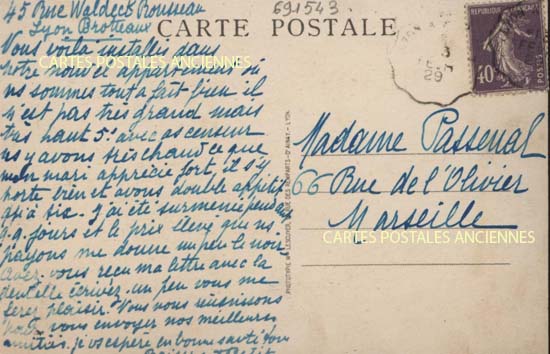 45 Rue Waldeck Rousseau
Lyon Brotteaux
691543
CARTE POSTALE
RÉPUBLIQUE FRANÇAISE
40
POSTES
29
Vous voila installés dans
notre nouvel appartement où
ns sommes tout a fait bien il
n'est pas très grand mais
très haut 5e avec ascenseur
ns y avons très chaud ce que
mon mari apprécie fort, il s'y
porte bien et avons double appétit
J'ai été surmenée
q.q. jours et le prix élevé que ns
payons me donne un peu le noir
Avez vous reçu ma lettre avec la
dentelle écrivez un peu vous me
ferez plaisir. Nous nous réunissons
pour vous envoyer nos meilleures
amitiés. j'espère en bonne santé
CARTES POSTALES ANCIENNES
Madame Passenal
66 Rue de l'Olivier
Marseille
CARTES POSTALES ANCIENNES